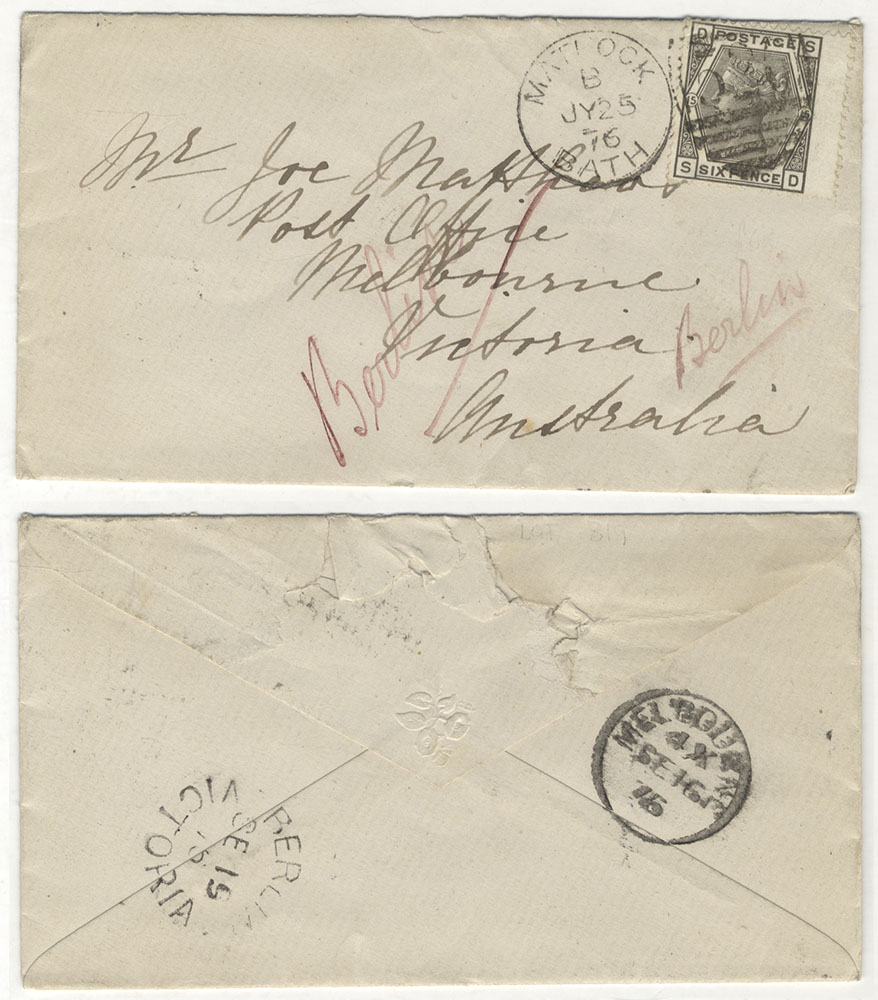 MATLOCK
B
JY 25
76
BATH
D POSTAGE S
15
S SIXPENCE D
Mr Joe Matthews
Post Office
Melbourne
Victoria
Australia
Berlin
LOT 319
MELBOURNE
4X
SE 16
76
BERLIN
SE 15
VICTORIA